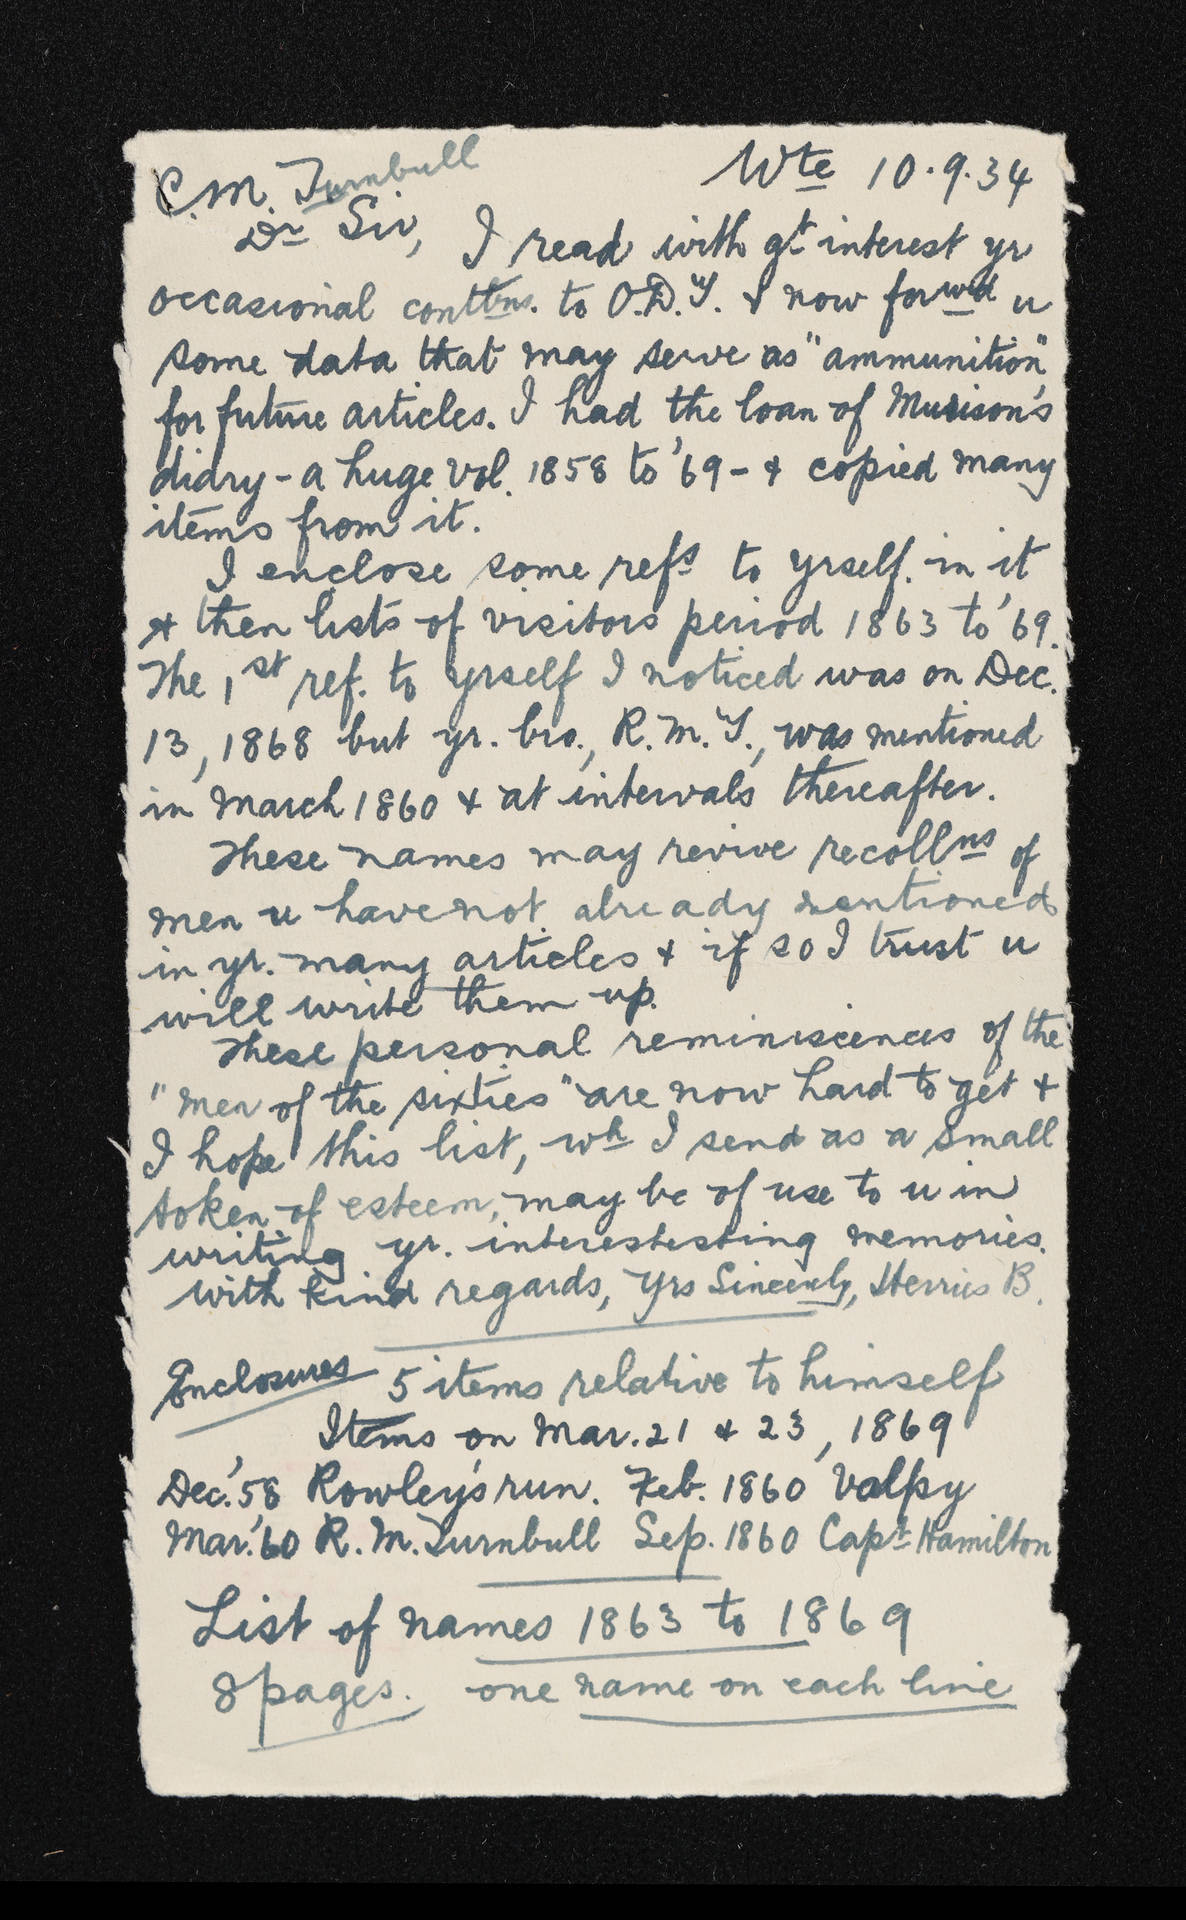 C.M. Turnbull Wte 10.9.34
Dr Sir, I read with gt interest yr
occasional conttns. to O.D.T. & now forwd u
some data that may serve as "ammunition"
for future articles. I had the loan of Murison's
diary - a huge vol. 1858 to '69 - & copied many
items from it.
I enclose some refs to yrself. in it
& then lists of visitors period 1863 to '69.
The 1st ref. to yrself I noticed was on Dec.
13, 1868 but yr. bro., R.M.T., was mentioned
in March 1860 & at intervals thereafter.
These names may revive recollns of
men u have not already mentioned
in yr. many articles & if so I trust u
will write them up.
These personal reminiscences of the
"men of the sixties" are now hard to get &
I hope this list, wh I send as a small
token of esteem, may be of use to u in
writing yr. interestesting memories.
With kind regards, Yrs Sincerely, Herries B.
Enclosures 5 items relative to himself
Items on Mar. 21 & 23, 1869
Dec. '58 Rowley's run. Feb. 1860 Valpy
Mar. '60 R.M. Turnbull Sep. 1860 Capt Hamilton
List of names 1863 to 1869
8 pages. one name on each line